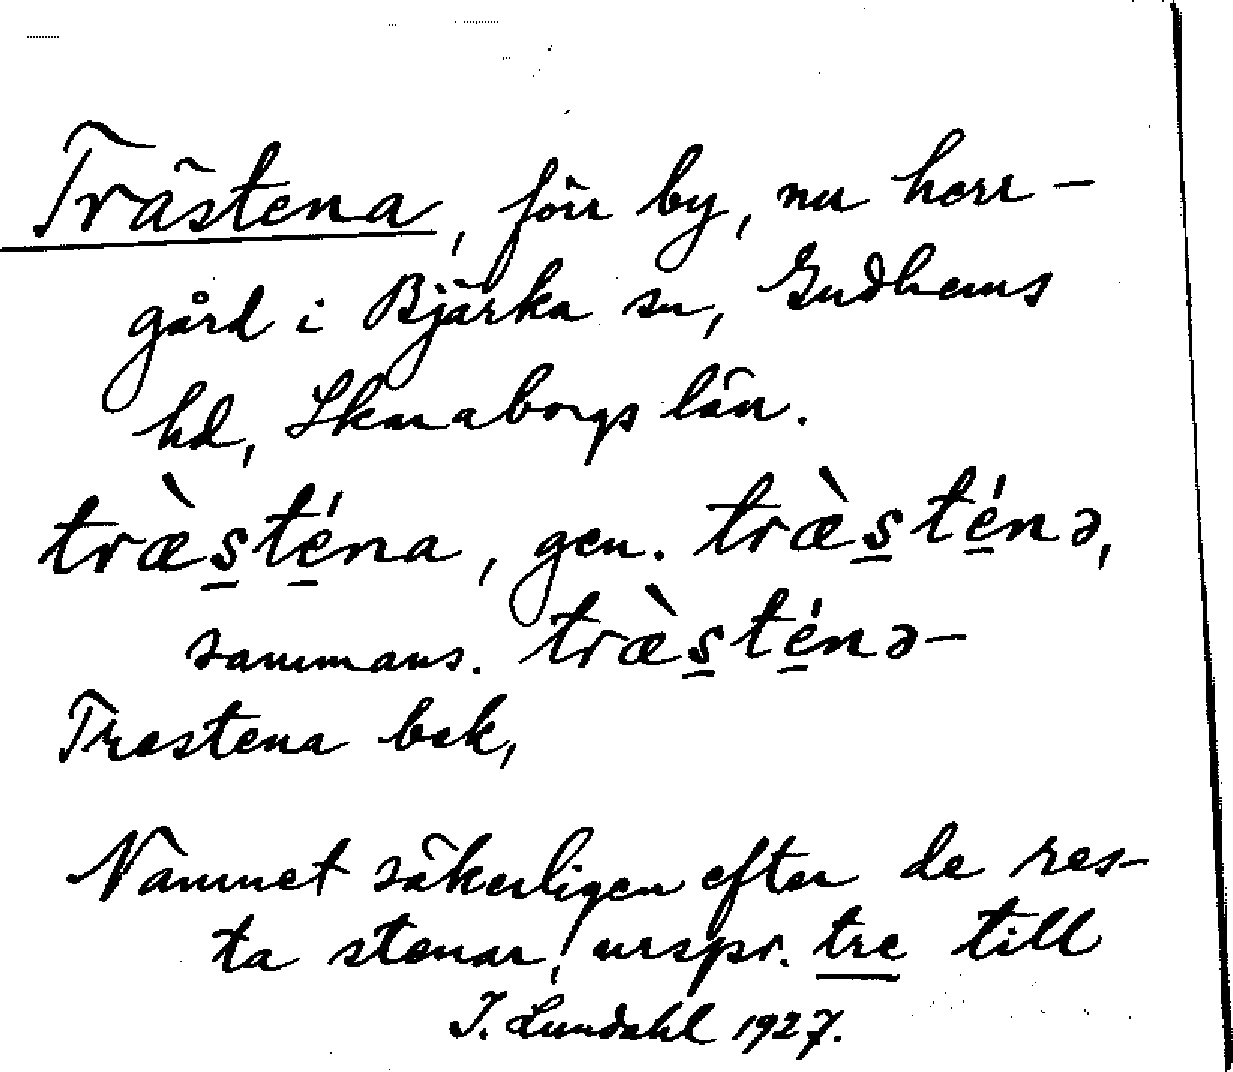 Trästena, förr by, nu herr-
gård i Bjärka sn, Gudhems
hd, Skaraborgs län.
træ̀s̱té̱na, gen. træ̀s̱té̱nə,
sammans. træ̀s̱té̱nə-
Træstena bak,
Namnet säkerligen efter de res-
ta stenar, urspr. tre till
I. Lundahl 1927.